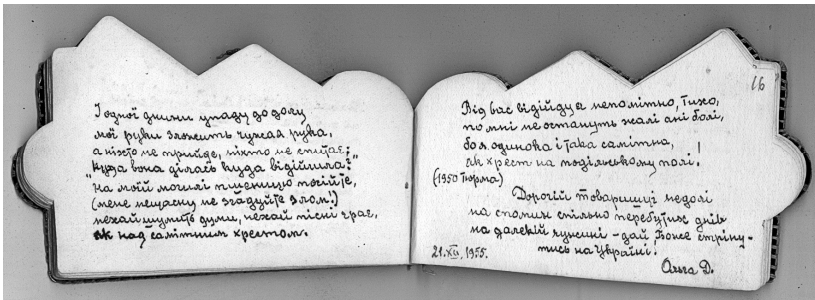 І одної днини упаду до долу
мої руки зложить чужая рука,
а ніхто не прийде, ніхто не спитає:
"куда вона ділась куда відійшла?"
На моїй могилі пшеницю посійте,
(мене нещасну не згадуйте злом!)
нехай шумить думи, нехай пісні грає,
як над самітним хрестом.
16
Від вас відійду я непомітно, тихо,
по мні не остануть жалі ані болі,
бо я одинока і така самітна,
як хрест на подільському полі!
(1950 тюрма)
Дорогій товаришці недолі
на спомин спільно перебутих днів
на далекій чужині - дай Боже стріну-
тись на Україні!
21.XII.1955.
Ольга Д.